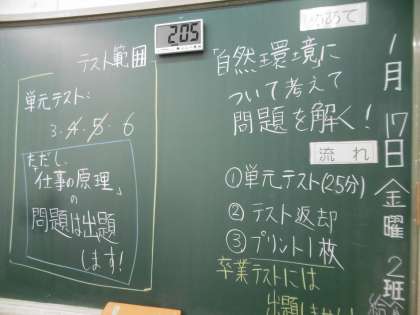 1月17日(金曜
2班
めあて
「自然環境に
ついて考えて
問題を解く!
流れ
①単元テスト(25分)
②テスト返却
③プリント1枚
卒業テストには
205
テスト範囲
単元テスト:
3・4・5・6
ただし、
「仕事の原理」
の
問題は出題
します!